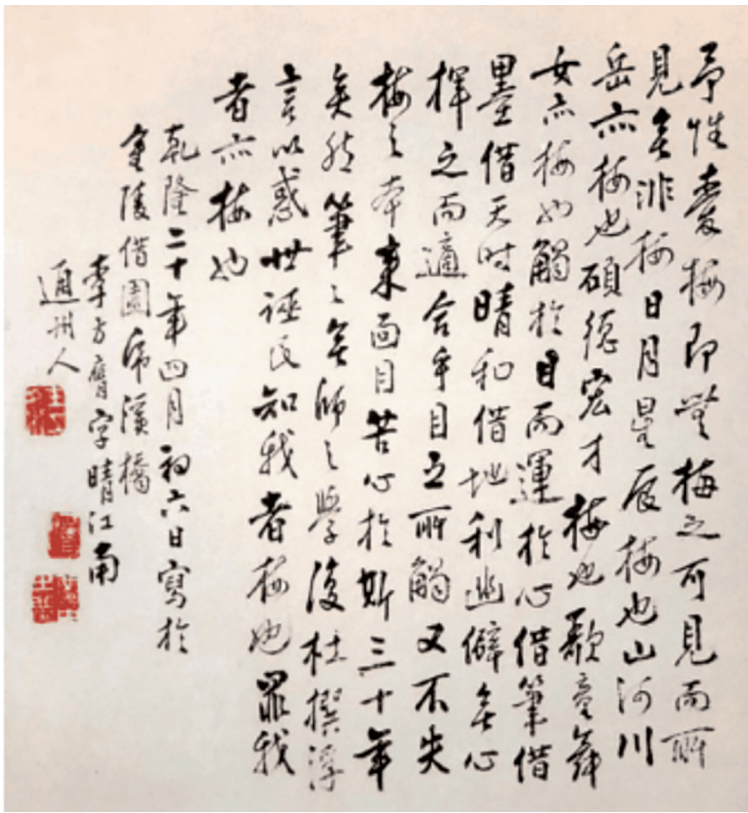 予性愛梅即無梅之可見而所
見無非梅日月星辰梅也山河川
岳亦梅也碩德宏才梅也歌童舞
女亦梅也觸於目而運於心借筆借
墨借天時晴和借地利幽僻無心
揮之而適合乎目之所觸又不失
梅之本來面目苦心於斯三十年
矣然筆〻無師之學復杜撰浮
言以惑世誣民知我者梅也罪我
者亦梅也
乾隆二十年四月初六日寫於
金陵借園虎溪橋
李方膺字晴江南
通州人